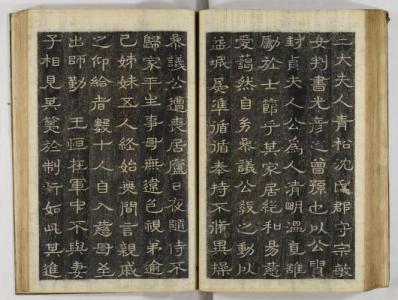 二大夫人青松沈氏郡子宗敏
女判書光彦之曾孫也以公貴
封貞夫人公爲人清明溫直雖
勵於士節乎其家居絶和易慈
愛藹然自參議公毅之動以
屢準循循奉持不異燥
參議公遭喪居廬日夜隨侍不
歸家平生事母無違色視弟逾
己姊妹五人終始無間言親戚
之仰給者數十人自入慈母至
出師勤王恒在軍中不與妻
子相見其篤於制行如此其進